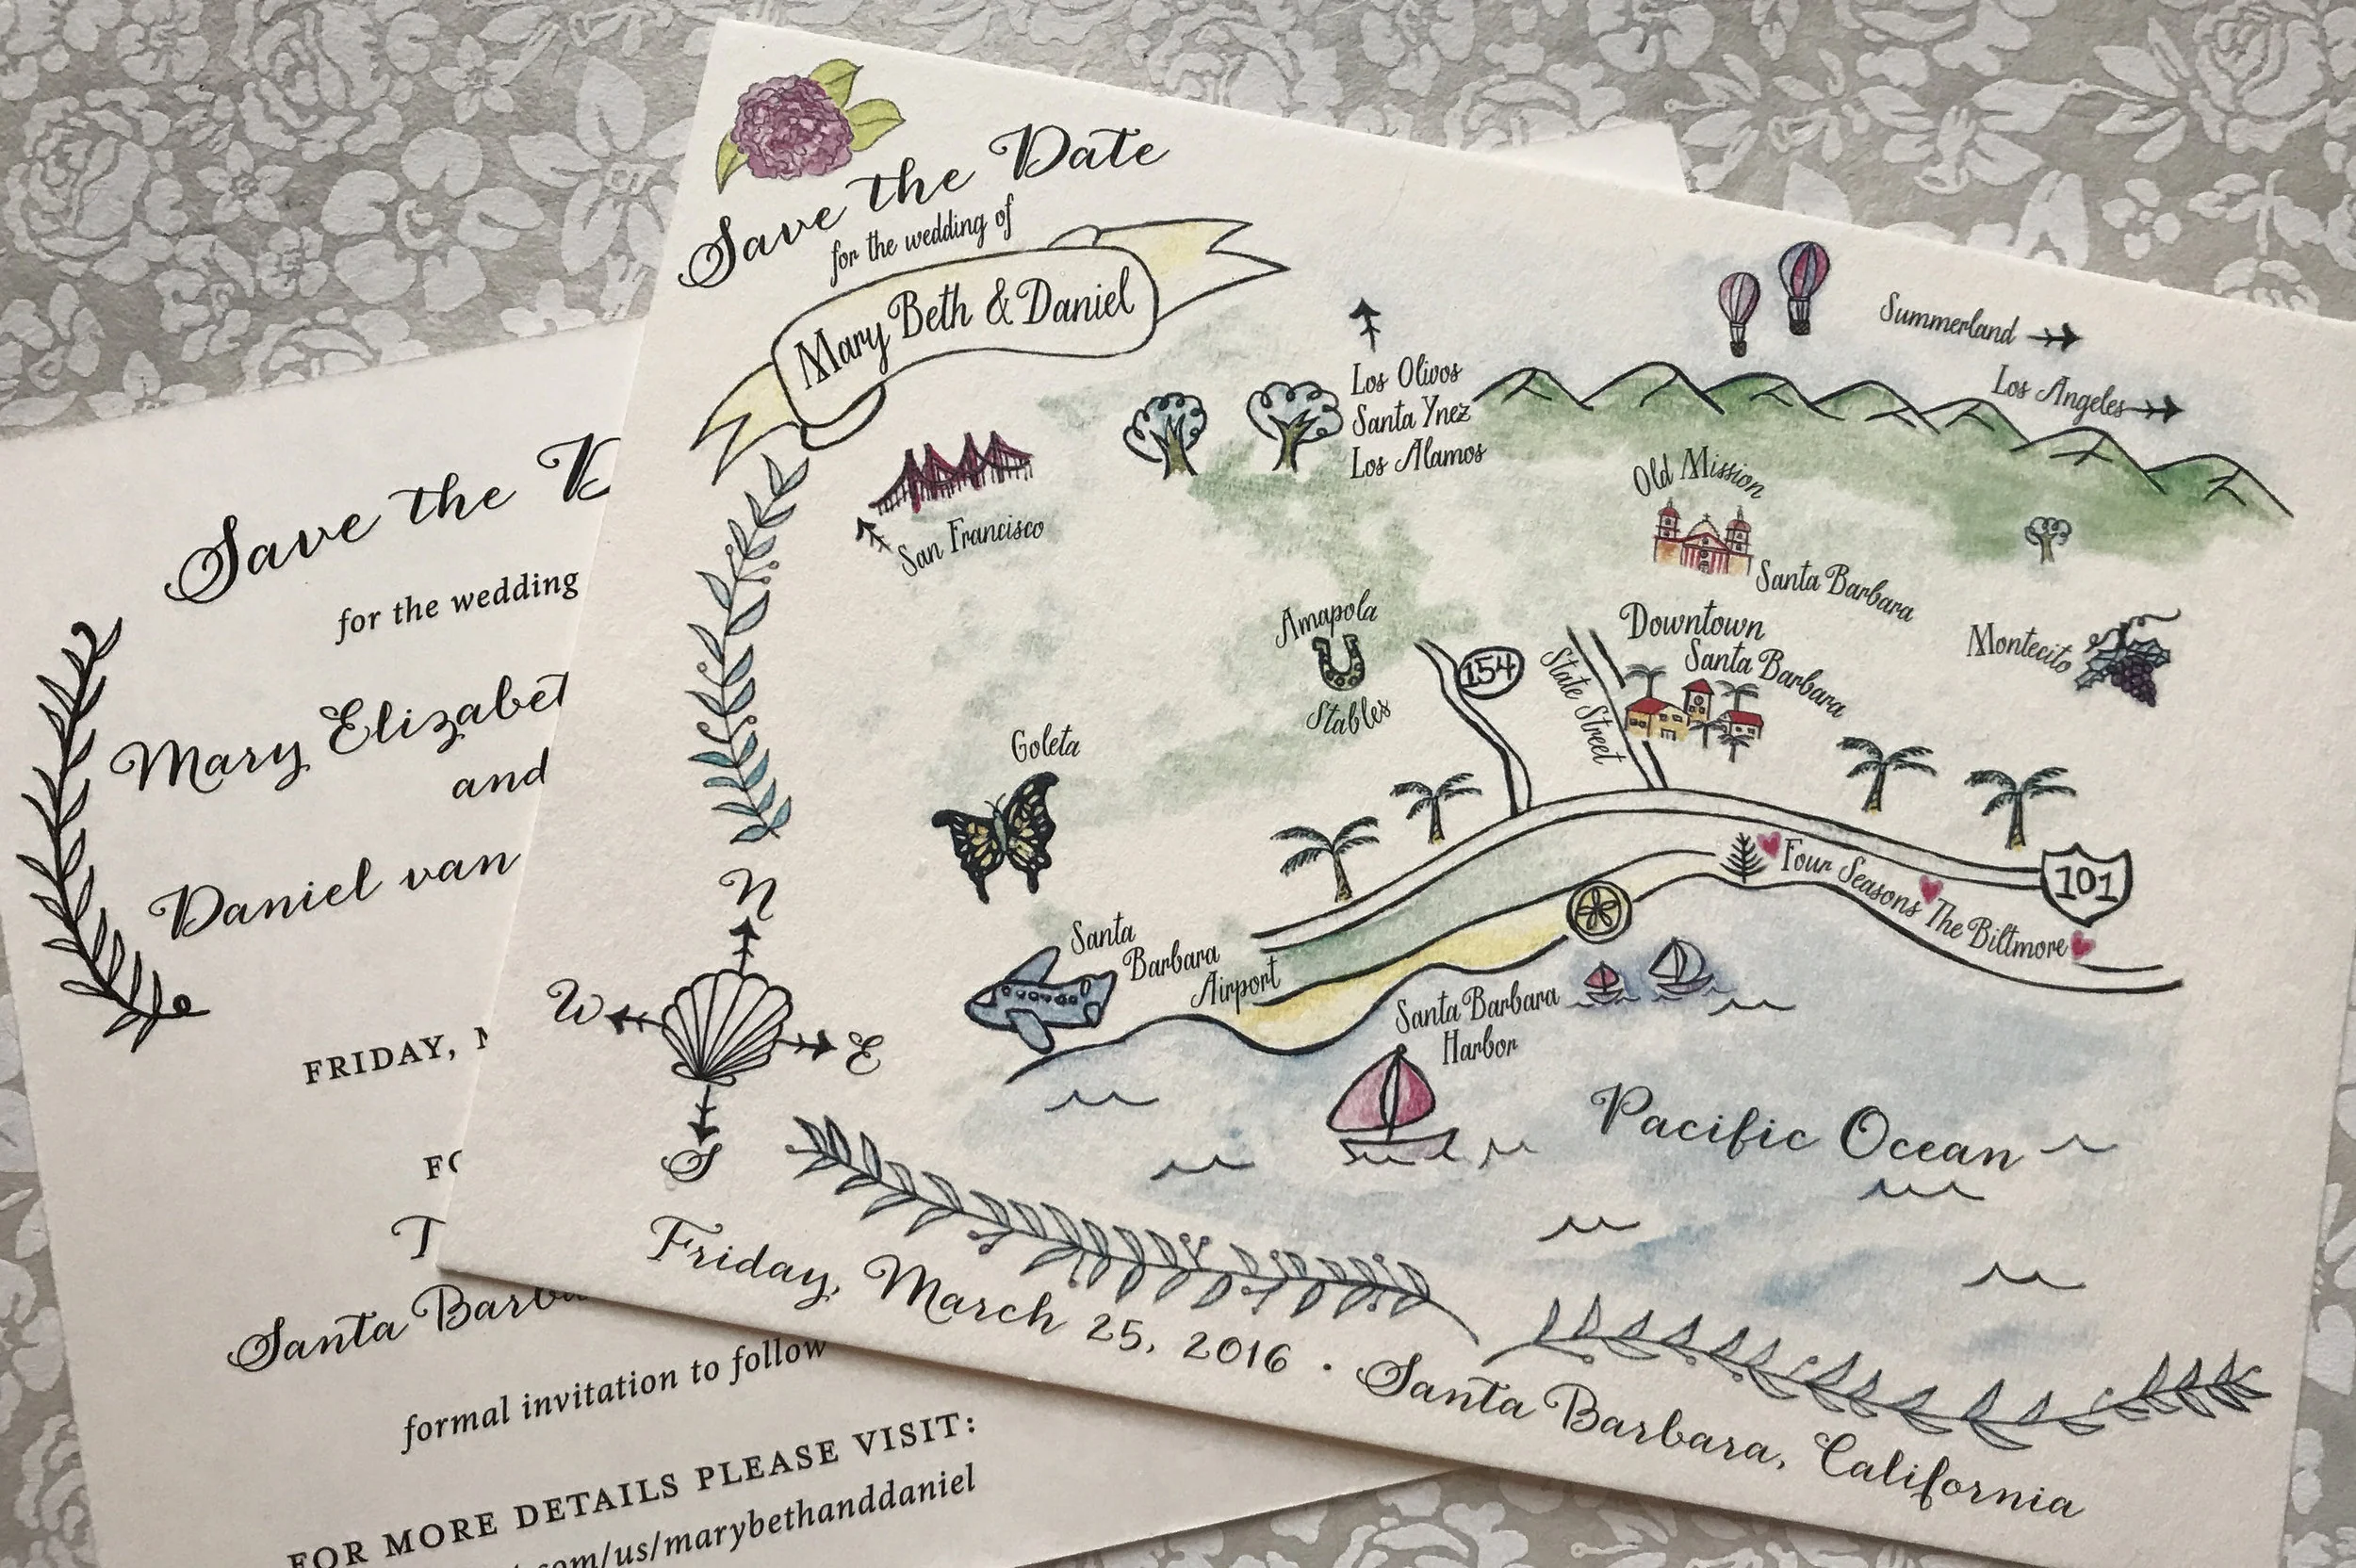 Save the Date
for the wedding of
Mary Beth & Daniel
Summerland
Los Angeles
Los Olivos
Santa Ynez
Los Alamos
San Francisco
Old Mission
Santa Barbara
Amapola
Stables
154
State Street
Downtown
Santa Barbara
Montecito
Goleta
Four Seasons
The Biltmore
101
Santa
Barbara
Airport
Santa Barbara
Harbor
Pacific Ocean
N
W
E
S
Friday, March 25, 2016 · Santa Barbara, California
Save the
for the wedding
Mary
and
Daniel van
FRIDAY,
Santa
formal invitation to follow
FOR MORE DETAILS PLEASE VISIT:
.com/us/marybethanddaniel